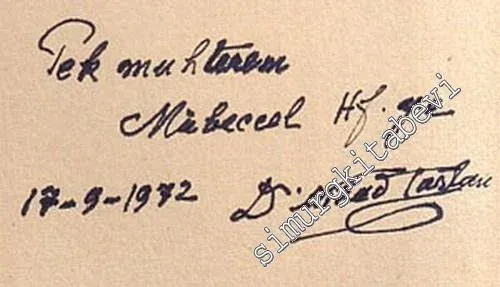 Pek muhterem
Mübeccel Hf. ye
17-9-1972 Tarlan
simurgkitabevi